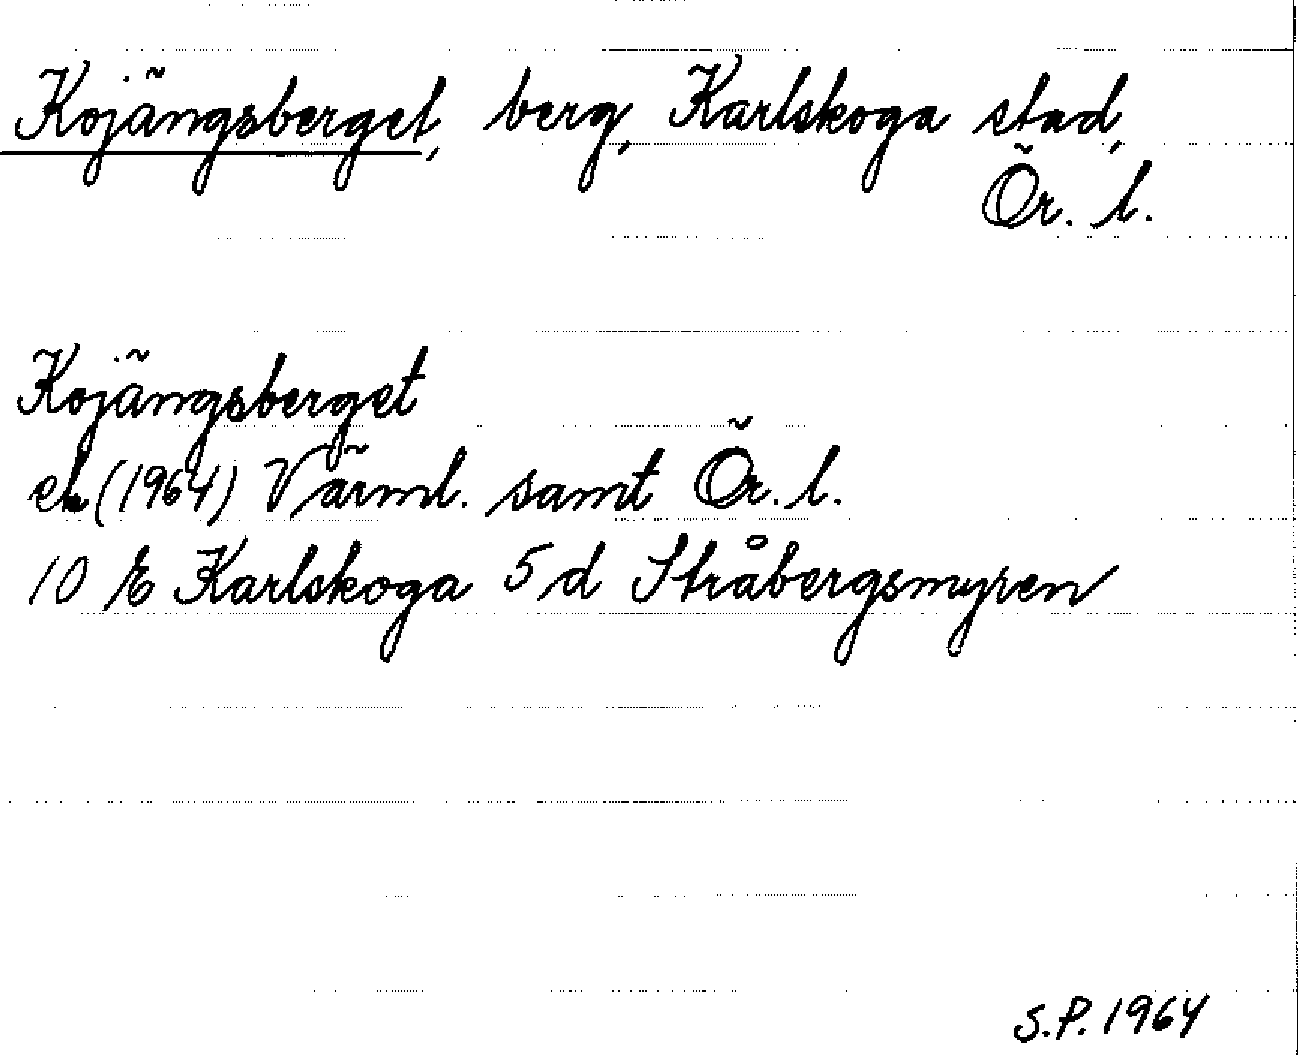 Kojängsberget, berg, Karlskoga stad,
Ör. l.
Kojängsberget
ek (1964) Värml. samt Ör. l.
10 E Karlskoga 5 d Stråbergsmyren
S.P. 1964